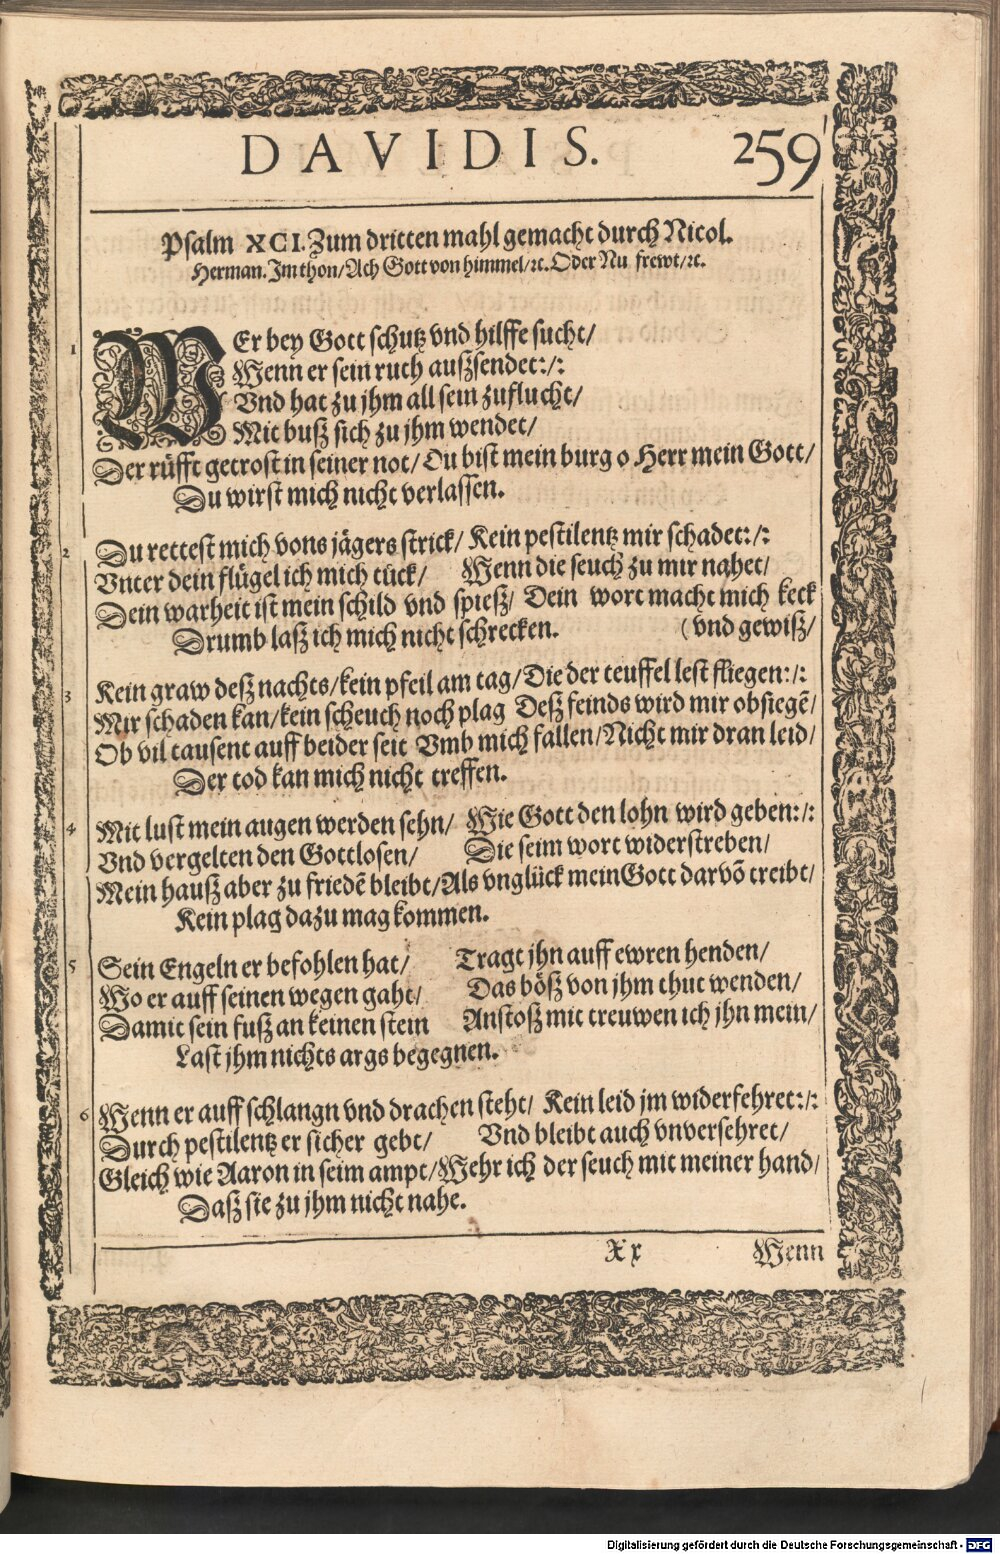 DAVIDIS. 259
Psalm XCI. Zum dritten mahl gemacht durch Nicol.
Herman. Im thon/Ach Gott von himmel/ꝛc. Oder Nu frewt/ꝛc.
1 WEr bey Gott schutz vnd hilffe sucht/
Wenn er sein ruch außsendet:/:
Vnd hat zu jhm all sein zuflucht/
Mit buß sich zu jhm wendet/
Der rüfft getrost in seiner not/ Du bist mein burg o Herr mein Gott/
Du wirst mich nicht verlassen.
2 Du rettest mich vons jägers strick/ Kein pestilentz mir schadet:/:
Vnter dein flügel ich mich tück/ Wenn die seuch zu mir nahet/
Dein warheit ist mein schild vnd spieß/ Dein wort macht mich keck
Drumb laß ich mich nicht schrecken. (vnd gewiß/
3 Kein graw deß nachts/kein pfeil am tag/ Die der teuffel lest fliegen:/:
Mir schaden kan/kein scheuch noch plag Deß feinds wird mir obsiegē/
Ob vil tausent auff beider seit Vmb mich fallen/Nicht mir dran leid/
Der tod kan mich nicht treffen.
4 Mit lust mein augen werden sehn/ Wie Gott den lohn wird geben:/:
Vnd vergelten den Gottlosen/ Die seim wort widerstreben/
Mein hauß aber zu friedē bleibt/Als vnglück mein Gott darvō treibt/
Kein plag dazu mag kommen.
5 Sein Engeln er befohlen hat/ Tragt jhn auff ewren henden/
Wo er auff seinen wegen gaht/ Das böß von jhm thut wenden/
Damit sein fuß an keinen stein Anstoß mit treuwen ich jhn mein/
Last jhm nichts args begegnen.
6 Wenn er auff schlangn vnd drachen steht/ Kein leid jm widerfehret:/:
Durch pestilentz er sicher geht/ Vnd bleibt auch vnversehret/
Gleich wie Aaron in seim ampt/Wehr ich der seuch mit meiner hand/
Daß sie zu jhm nicht nahe.
Xx Wenn
Digitalisierung gefördert durch die Deutsche Forschungsgemeinschaft - DFG